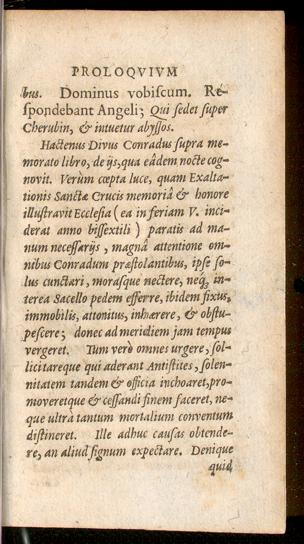 PROLOQVIVM
bus. Dominus vobiscum. Re-
spondebant Angeli; Qui sedet super
Cherubin, & intuetur abyssos.
Hactenus Divus Conradus supra me-
morato libro, de ijs, qua eâdem nocte cog-
novit. Verùm cœpta luce, quam Exalta-
tionis Sanctæ Crucis memoriâ & honore
illustravit Ecclesia (ea in feriam V. inci-
derat anno bissextili) paratis ad ma-
num necessarijs, magnâ attentione om-
nibus Conradum præstolantibus, ipse so-
lus cunctari, morasque nectere, neq; in-
terea Sacello pedem efferre, ibidem fixus,
immobilis, attonitus, inhærere, & obstu-
pescere; donec ad meridiem jam tempus
vergeret. Tum verò omnes urgere, sol-
licitareque qui aderant Antistites, solen-
nitatem tandem & officia inchoaret, pro-
moveretque & cessandi finem faceret, ne-
que ultrà tantum mortalium conventum
distineret. Ille adhuc causas obtende-
re, an aliud signum expectare. Denique
quid